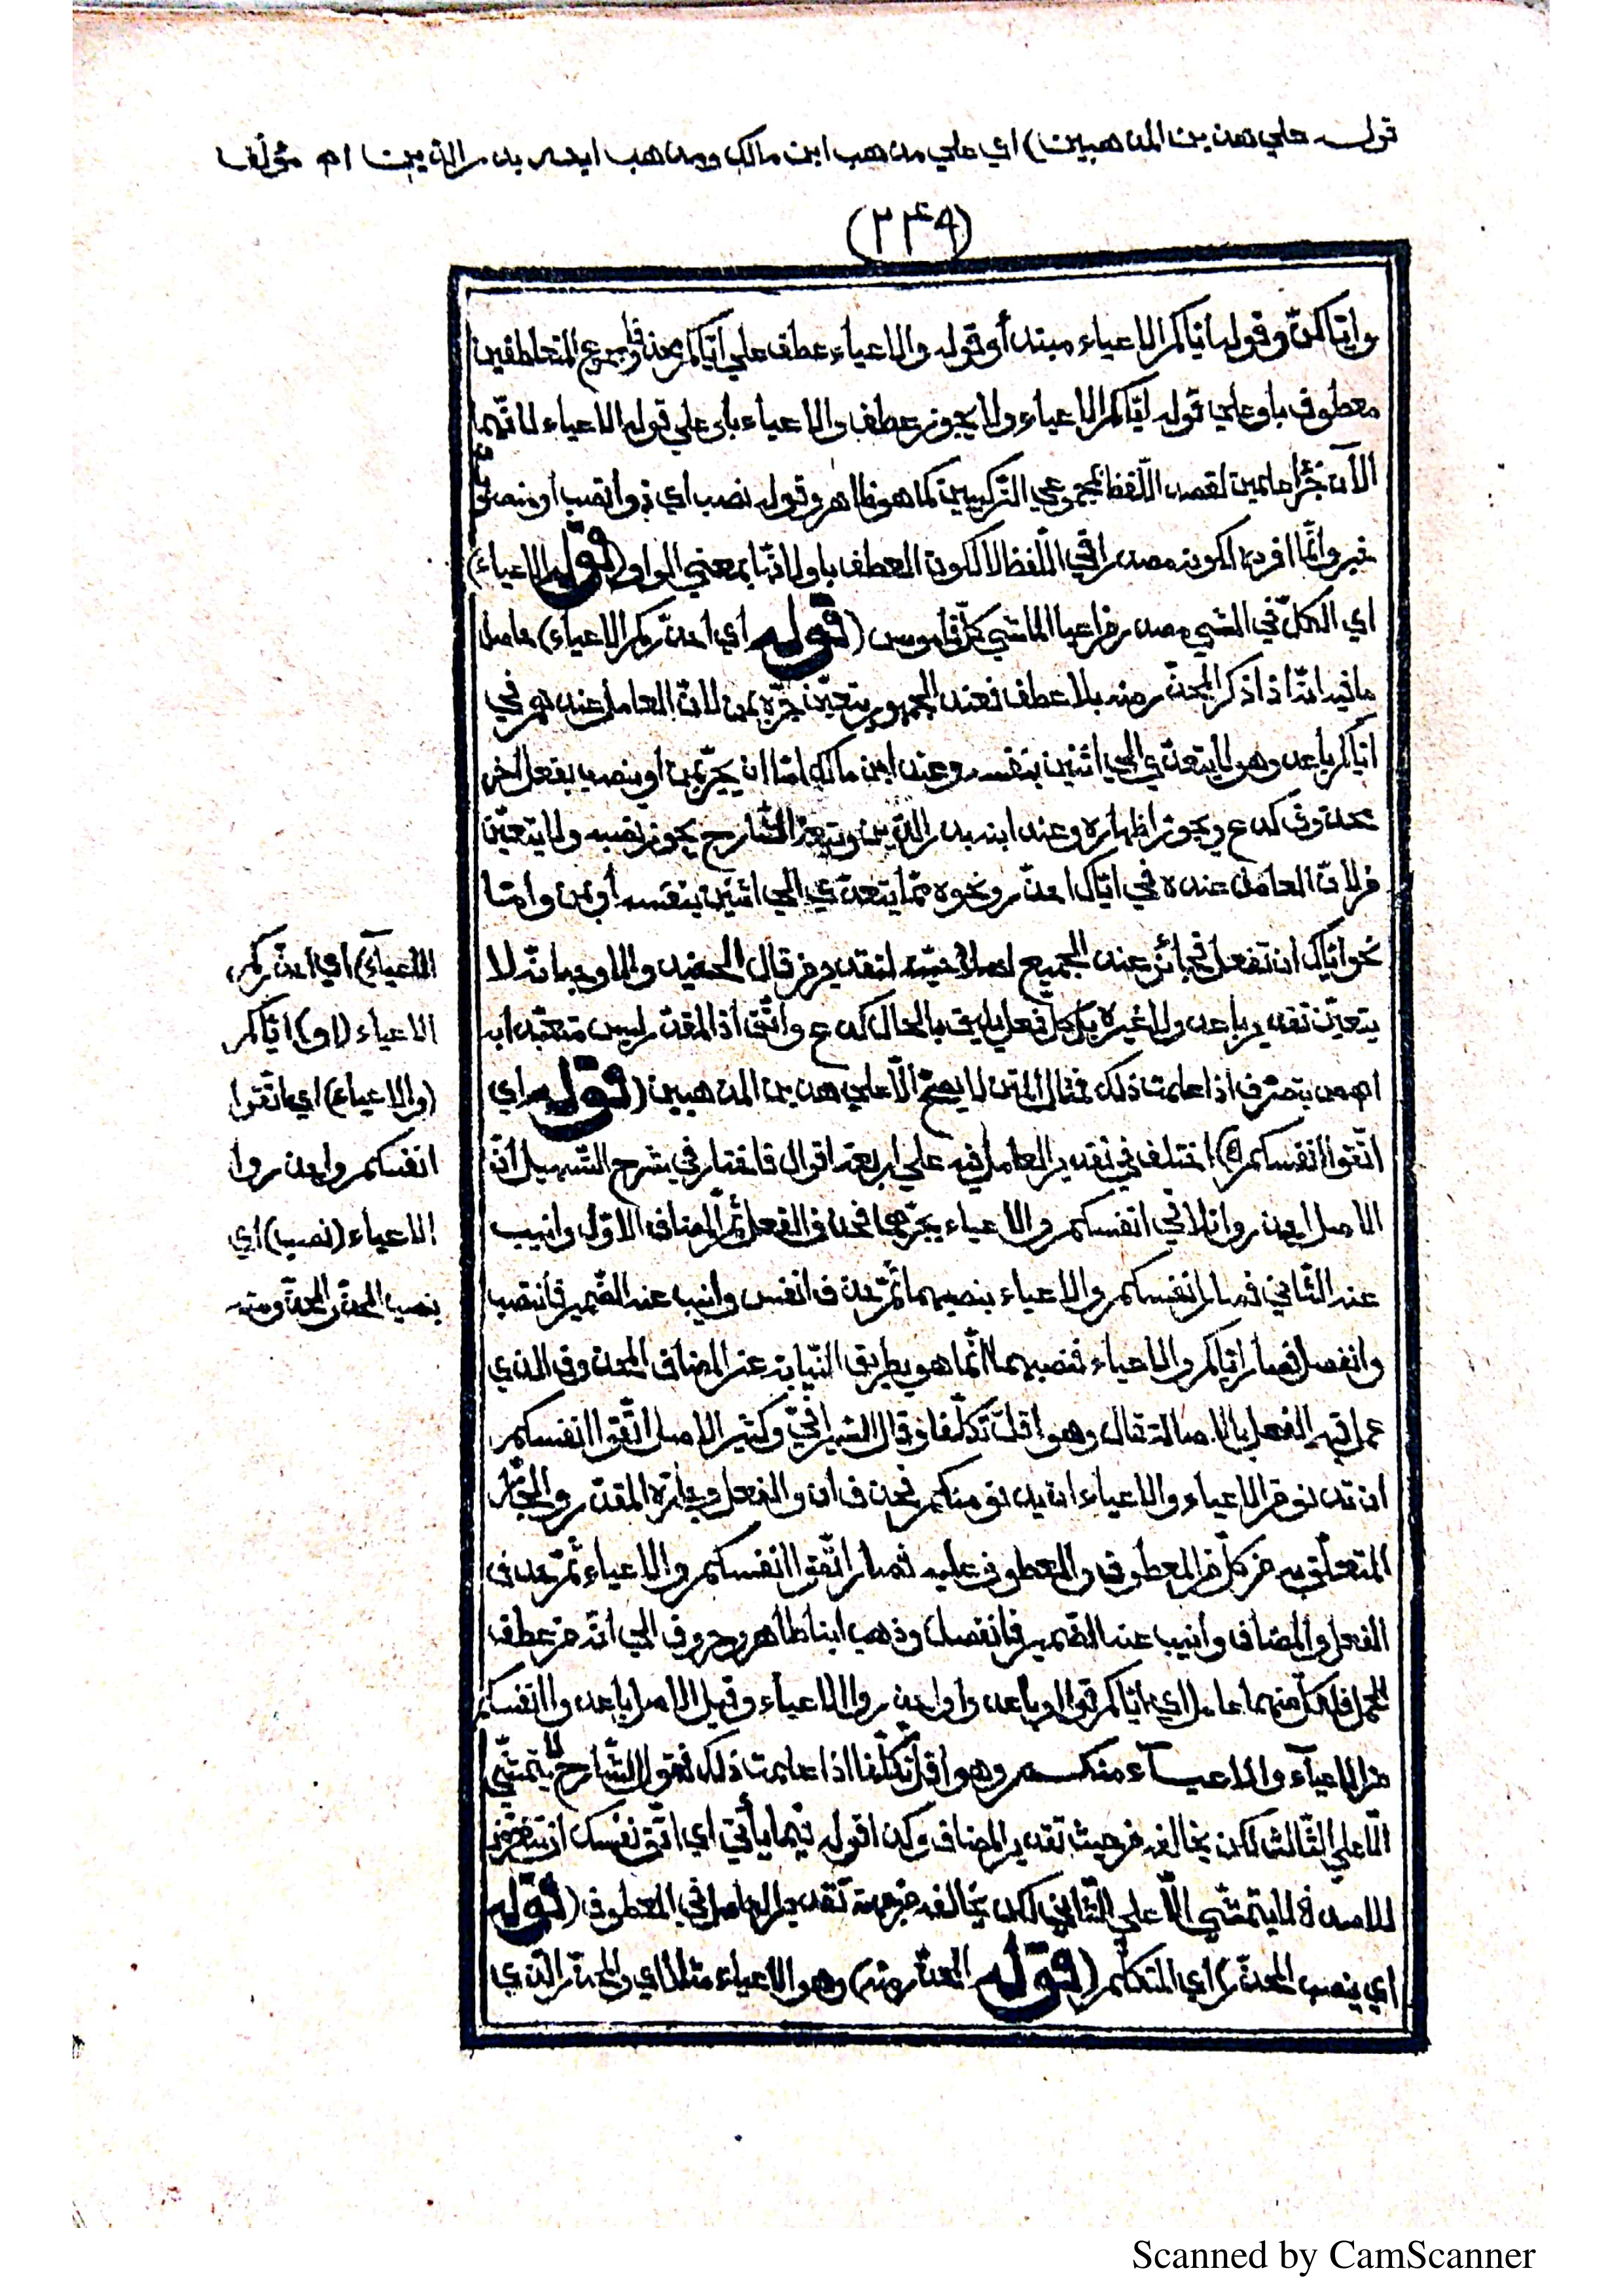 قوله على هذين المذهبين) اي على مذهب ابن مالك ومذهب ابنه بدر الدين اه مؤلف
(٢٤٩)
وايّاكنّ وقوله ايّاكم الاعياء مبتدأ وقوله والاعياء عطف على ايّاكم بحذف مجموع المتعاطفين
معطوف باو على قوله ايّاكم الاعياء ولا يجوز عطف والاعياء باو على قوله الاعياء لانّهما
الآن جزأ علمين لقصد اللّفظ بمجموعي التّركيبين كما هو ظاهر وقوله نصب اي ذو انصب او منصوب
خبر وانّما افرده لكونه مصدرا في اللّفظ لا لكون العطف باو لانّها بمعنى الواو (قوله الاعياء)
اي الكلّ في المشي مصدر من اعيا الماشي كلّ قاموس (قوله اي احذّركم الاعياء) حاصل
ما فيه انّه اذا ذكر المحذّر منه بلا عطف فعند الجمهور يتعيّن جرّه بمن لانّ العامل عندهم في
ايّاكم باعد وهو لا يتعدّى الى اثنين بنفسه وعند ابن مالك امّا ان يجرّ بمن او ينصب بفعل اخر
محذوف كدع ويجوز اظهاره وعند ابنه بدر الدّين وتبعه الشّارح يجوز نصبه ولا يتعيّن
من لانّ العامل عنده في ايّاك احذّر ونحوه ممّا يتعدّى الى اثنين بنفسه او بمن وامّا
نحو ايّاك ان تفعل فجائز عند الجميع لصلاحيّته لتقدير من قال الحفيد والاوجه انّه لا
يتعيّن تقدير باعد ولا غيره بل كلّ فعل يليق بالحال كدع واتّق اذ المقدّر ليس متعبّدا به
اهـ من بتصرّف اذا علمت ذلك فمثال المتن لا يصحّ الّا على هذين المذهبين (قوله اي
اتّقوا انفسكم الخ) اختلف في تقدير العامل فيه على اربعة اقوال فاختار في شرح التّسهيل انّ
الاصل احذروا تلاقي انفسكم والاعياء بجرّهما فحذف الفعل ثمّ المضاف الاوّل وانيب
عنه الثّاني فصار انفسكم والاعياء بنصبهما ثمّ حذف انفس وانيب عنه الضّمير فانتصب
وانفصل فصار ايّاكم والاعياء فنصبهما انّما هو بطريق النّيابة عن المضاف المحذوف الذي
عمل فيه الفعل بالاصالة قال وهو اقلّ تكلّفا وقال السّيرافيّ وكثير الاصل اتّقوا انفسكم
ان تدنو من الاعياء والاعياء ان يدنو منكم فحذف ان والفعل وجارّه المقدّر والجارّ
المتعلّق به من كلّ من المعطوف والمعطوف عليه فصار اتّقوا انفسكم والاعياء ثمّ حذف
الفعل والمضاف وانيب عنه الضّمير فانفصل وذهب ابنا طاهر وخروف الى انّه من عطف
الجمل فلكلّ منهما عامل اي ايّاكم قوا او باعدوا واحذروا الاعياء وقيل الاصل باعدوا انفسكم
من الاعياء والاعيـاء منكـم وهو اقلّ تكلّفا اذا علمت ذلك فقول الشّارح لا يتمشّى
الّا على الثّالث لكن يخالفه من حيث تقدير المضاف وكذا قوله فيما يأتي اي اتّق نفسك ان تتعرّض
للاسد فلا يتمشّى الّا على الثّاني لكن يخالفه من جهة تقدير العامل في المعطوف (قوله
اي ينصب المحذّر) اي المتكلّم (قوله المحذّر منه) وهو الاعياء مثلا اي والمحذّر الذي
الاعياء) اي احذّركم
الاعياء (او) ايّاكم
(والاعياء) اي اتّقوا
انفسكم واحذروا
الاعياء (نصب) اي
ينصب المحذّر المحذّر منه
Scanned by CamScanner